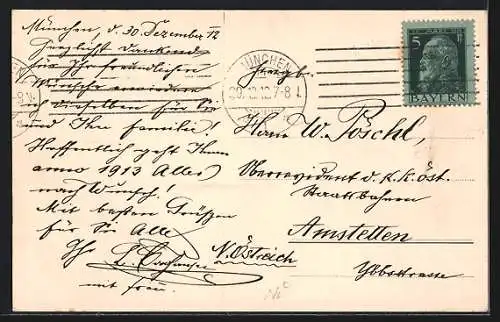 München, d. 30 Dezember 12
Herzlichst dankend
für Ihre freundlichen
Wünsche erwidere
ich dieselben für Sie
und Ihre Familie!
Hoffentlich geht Ihnen
anno 1913 Alles
nach Wunsch!
Mit besten Grüßen
für Sie Alle
Ihr
mit Frau.
MÜNCHEN
5
BAYERN
Herrn W. Pöschl,
Oberrevident d. K. K. öst.
Staatsbahnen
Amstetten
N. Östreich
Ybbsstrasse